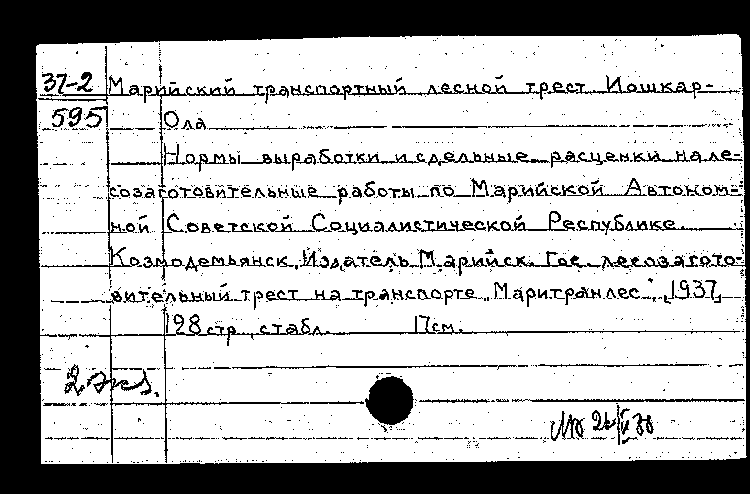 37-2 Марийский транспортный лесной трест Иошкар-
595 Ола
Нормы выработки и сдельные расценки на ле-
созаготовительные работы по Марийской Автоном-
ной Советской Социалистической Республике.
Козмодемьянск, Издатель Марийск. Гос. лесозагото-
вительный трест на транспорте „Маритранлес", [1937]
128 стр. с табл. 17 см.
2 экз.